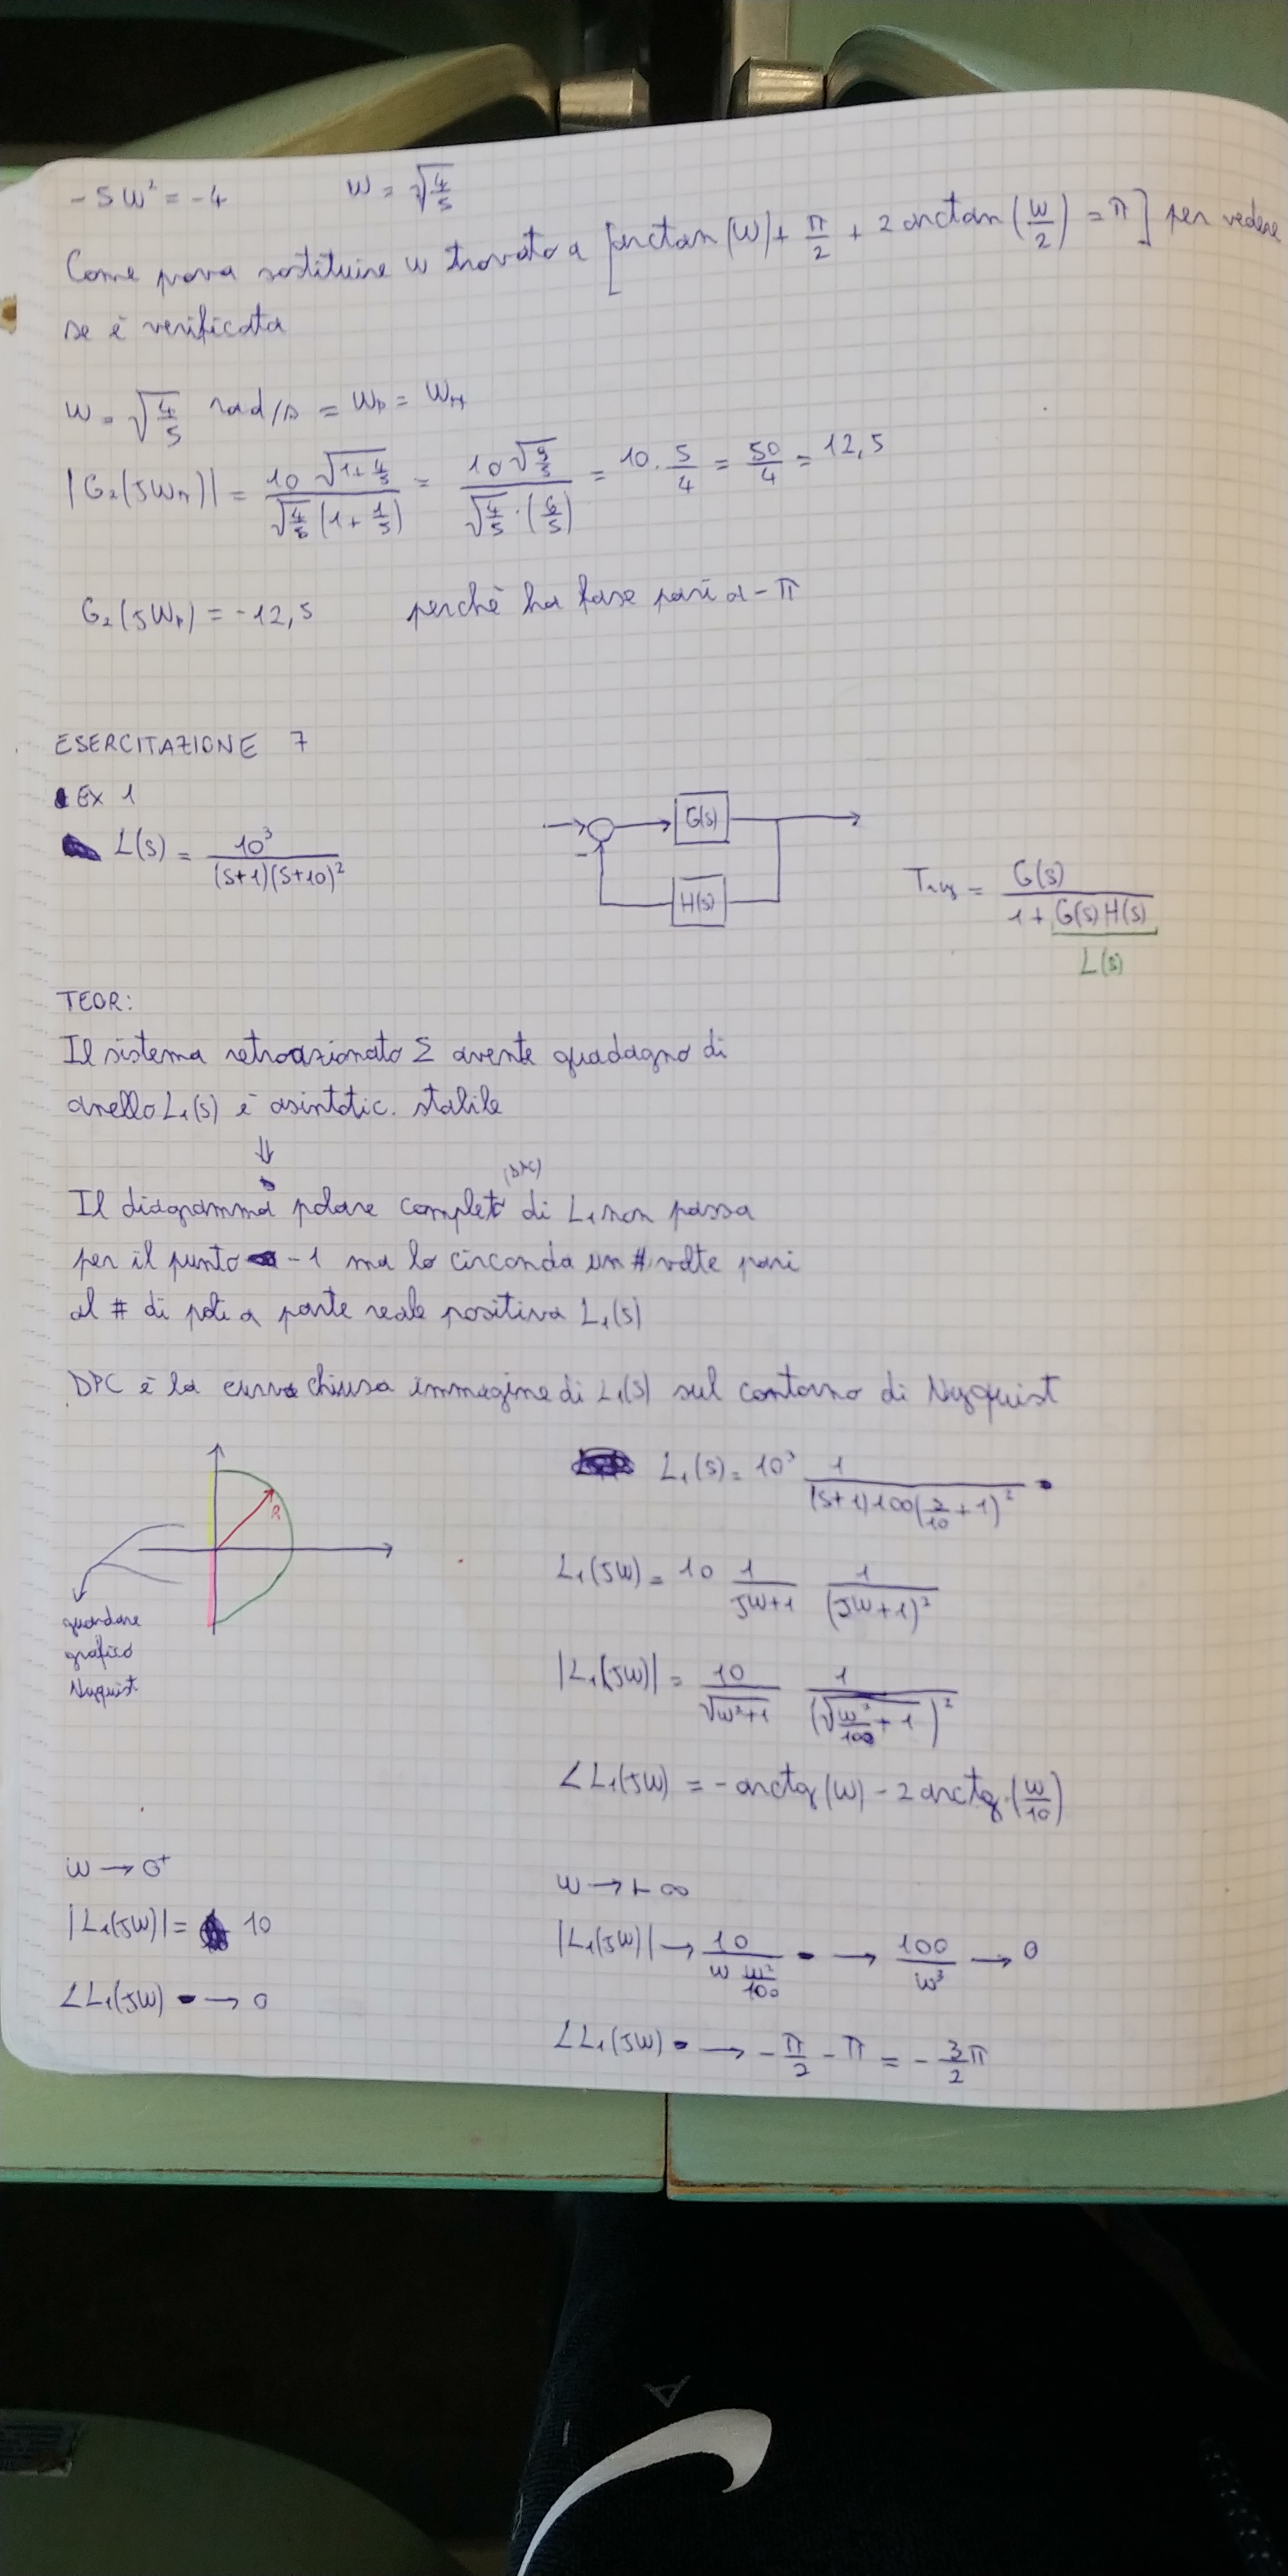 -5W² = -4   W = √(4/5)
Come prova sostituire W trovato a [arctan(W) + π/2 + 2 arctan(W/2) = π] per vedere
se è verificata
W = √(4/5) rad/s = Wp = Wπ
|G₂(JWπ)| = 10 √(1+4/5) / (√(4/5) (1+1/5)) = 10 √(9/5) / (√(4/5) · (6/5)) = 10 · 5/4 = 50/4 = 12,5
G₂(JWp) = -12,5   perchè ha fase pari a -π
ESERCITAZIONE 7
EX 1
L(s) = 10³ / ((s+1)(s+10)²)
G(s)
-
H(s)
= G(s) / (1 + G(s)H(s))
L(s)
TEOR:
Il sistema retroazionato Σ avente guadagno di
anello L₁(s) è asintotic. stabile
⇓
(DPC)
Il diagramma polare completo di L₁ non passa
per il punto -1 ma lo circonda un # volte pari
al # di poli a parte reale positiva L₁(s)
DPC è la curva chiusa immagine di L₁(s) sul contorno di Nyquist
R
guardare
grafico
Nyquist
L₁(s) = 10³ 1 / ((s+1)100(s/10 + 1)²)
L₁(JW) = 10 1/(JW+1) 1/(JW+1)²
|L₁(JW)| = 10/√(W²+1) 1/(√(W²/100 + 1))²
∠L₁(JW) = -arctg(W) - 2 arctg(W/10)
W → 0⁺
|L₁(JW)| = 10
∠L₁(JW) → 0
W → +∞
|L₁(JW)| → 10/(W W²/100) → 100/W³ → 0
∠L₁(JW) → -π/2 - π = -3/2 π